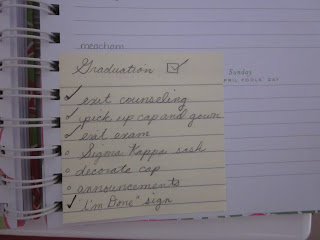 meacham
Sunday
APRIL FOOLS' DAY
Graduation ☑
✓ exit counseling
✓ pick up cap and gown
✓ exit exam
○ Sigma Kappa sash
○ decorate cap
○ announcements
✓ "I'm Done" sign